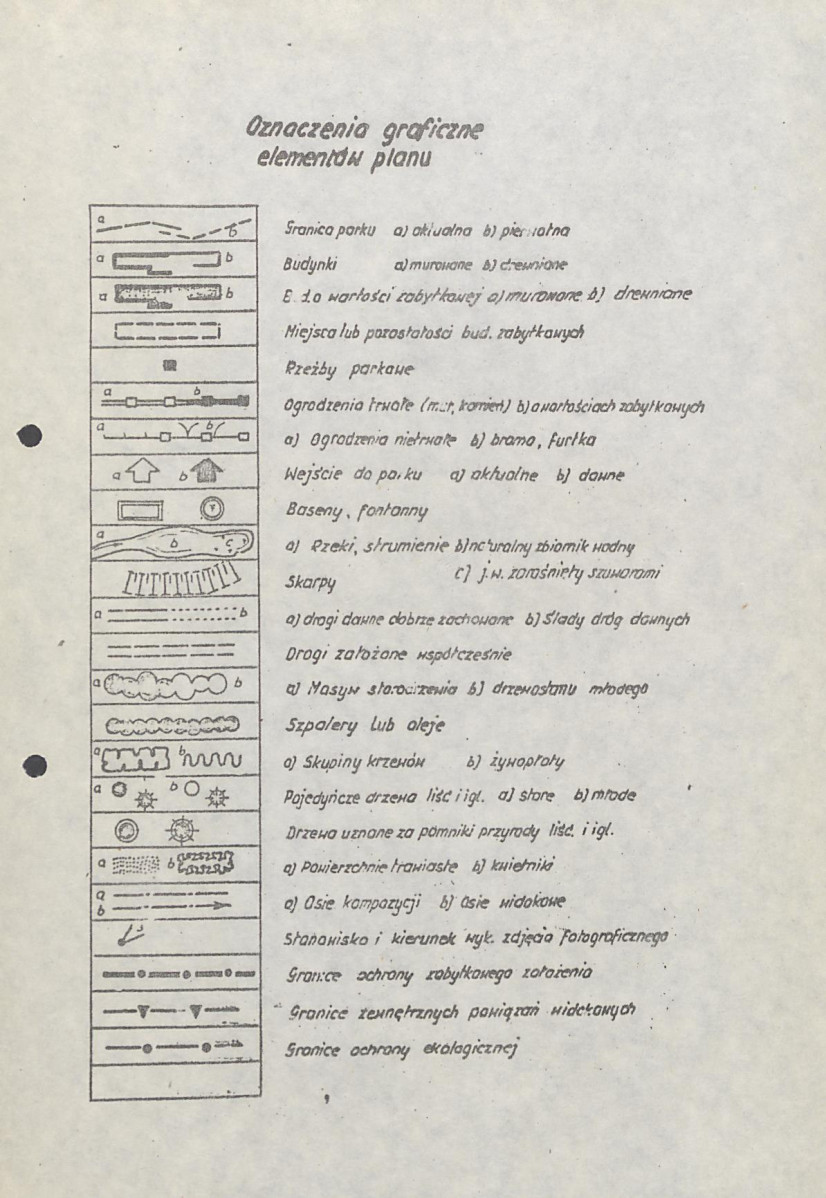 Oznaczenia graficzne
elementów planu
a b
Granica parku a) aktualna b) pierwotna
a b
Budynki a) murowane b) drewniane
a b
B. d.o wartości zabytkowej a) murowane b) drewniane
Miejsca lub pozostałości bud. zabytkowych
Rzeźby parkowe
a b
Ogrodzenia trwałe (mur, kamień) b) o wartościach zabytkowych
a b
a) Ogrodzenia nietrwałe b) brama, furtka
a b
Wejście do parku a) aktualne b) dawne
Baseny, fontanny
a b c
a) Rzeki, strumienie b) naturalny zbiornik wodny
c) j.w. zarośnięty szuwarami
Skarpy
a b
a) drogi dawne dobrze zachowane b) Ślady dróg dawnych
Drogi założone współcześnie
a b
a) Masyw starodrzewia b) drzewostanu młodego
Szpalery lub aleje
a b
a) Skupiny krzewów b) żywopłoty
a b
Pojedyńcze drzewa liść i igl. a) stare b) młode
Drzewa uznane za pomniki przyrody liść. i igl.
a b
a) Powierzchnie trawiaste b) kwietniki
a
b
a) Osie kompozycji b) Osie widokowe
Stanowisko i kierunek wyk. zdjęcia fotograficznego
Granice ochrony zabytkowego założenia
Granice zewnętrznych powiązań widokowych
Granice ochrony ekologicznej